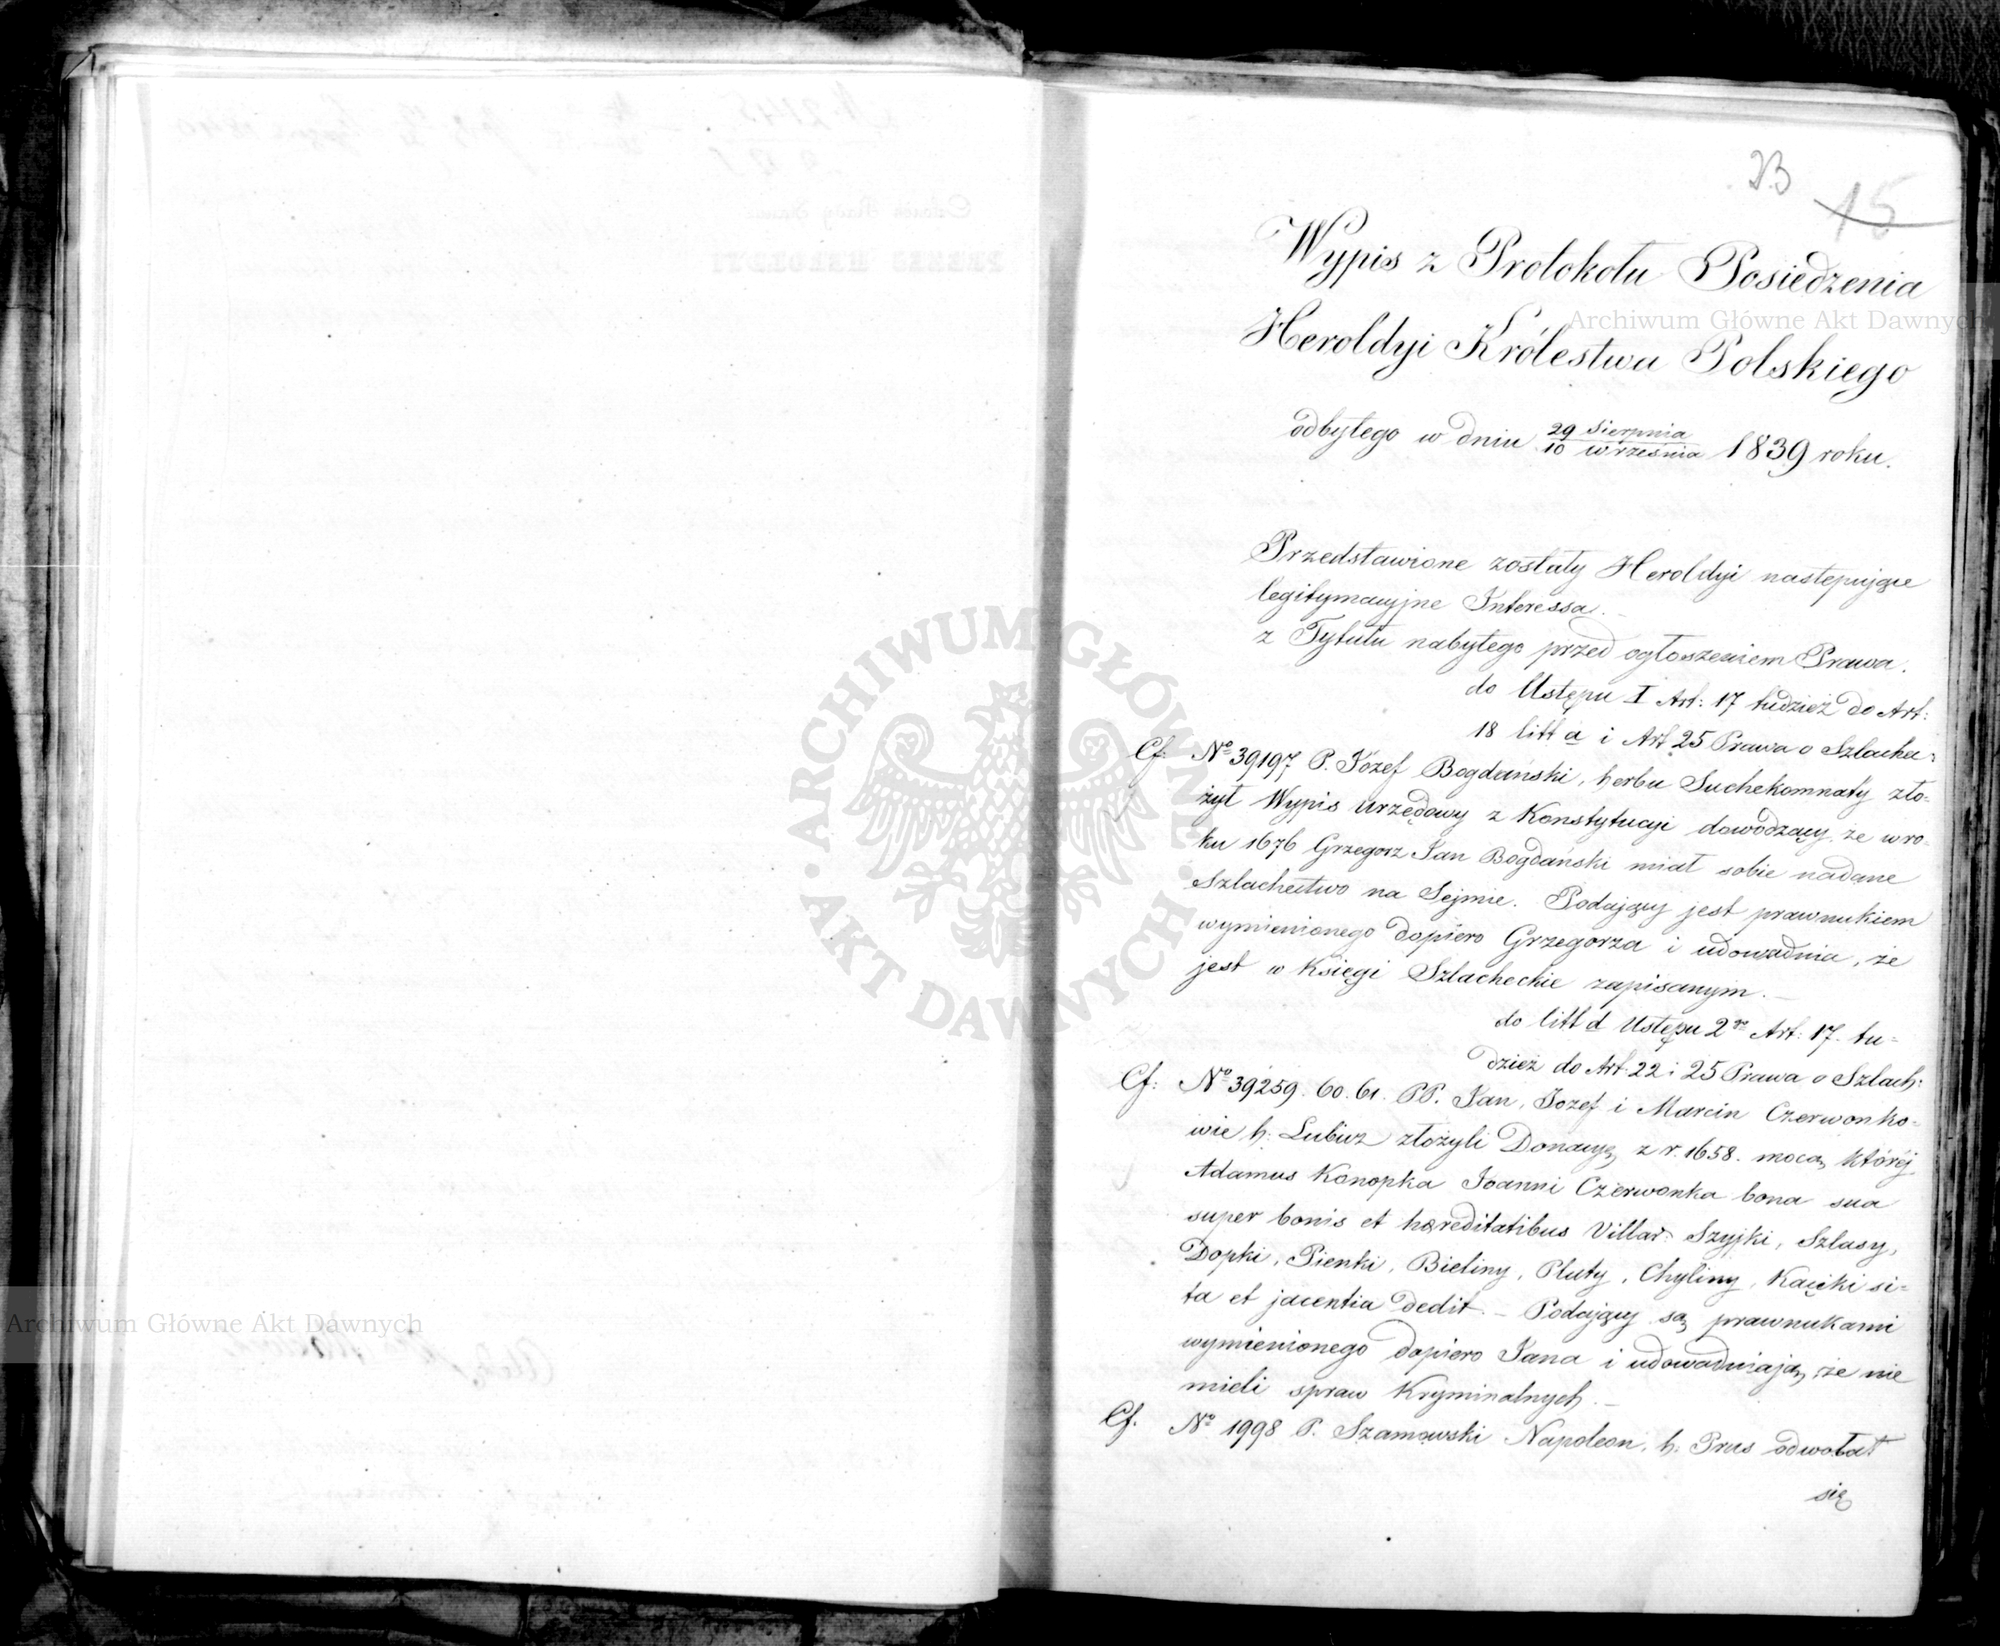 23
15
Wypis z Protokołu Posiedzenia
Heroldyi Królestwa Polskiego
odbytego w dniu 29 Sierpnia / 10 września 1839 roku.
Przedstawione zostały Heroldyi następujące
legitymacyjne Interessa.
z Tytułu nabytego przed ogłoszeniem Prawa.
do Ustępu I Art: 17 tudzież do Art:
18 litt a i Art 25 Prawa o Szlache:
Cf: No 39197 P. Józef Bogdański, herbu Suchekomnaty zło-
żył Wypis urzędowy z Konstytucyi dowodzący że w ro-
ku 1676 Grzegorz Jan Bogdański miał sobie nadane
Szlachectwo na Sejmie. Podający jest prawnukiem
wymienionego dopiero Grzegorza i udowadnia, że
jest w Księgi Szlacheckie zapisanym. —
do litt d Ustępu 2go Art: 17. tu-
dzież do Art. 22 i 25 Prawa o Szlach:
Cf: No 39259. 60. 61. PP. Jan, Józef i Marcin Czerwonko-
wie h. Lubicz złożyli Donacyą z r. 1658. mocą której
Adamus Konopka Joanni Czerwonka bona sua
super bonis et hæreditatibus Villar: Szyjki, Szlasy,
Dopki, Pienki, Bieliny, Pluty, Chyliny, Kaczki si-
ta et jacentia dedit. — Podający są prawnukami
wymienionego dopiero Jana i udowadniają, że nie
mieli spraw Kryminalnych. —
Cf. No 1998 P. Szamowski Napoleon, h: Prus odwołał
się
Archiwum Główne Akt Dawnych
Archiwum Główne Akt Dawnych
ARCHIWUM GŁÓWNE · AKT DAWNYCH ·